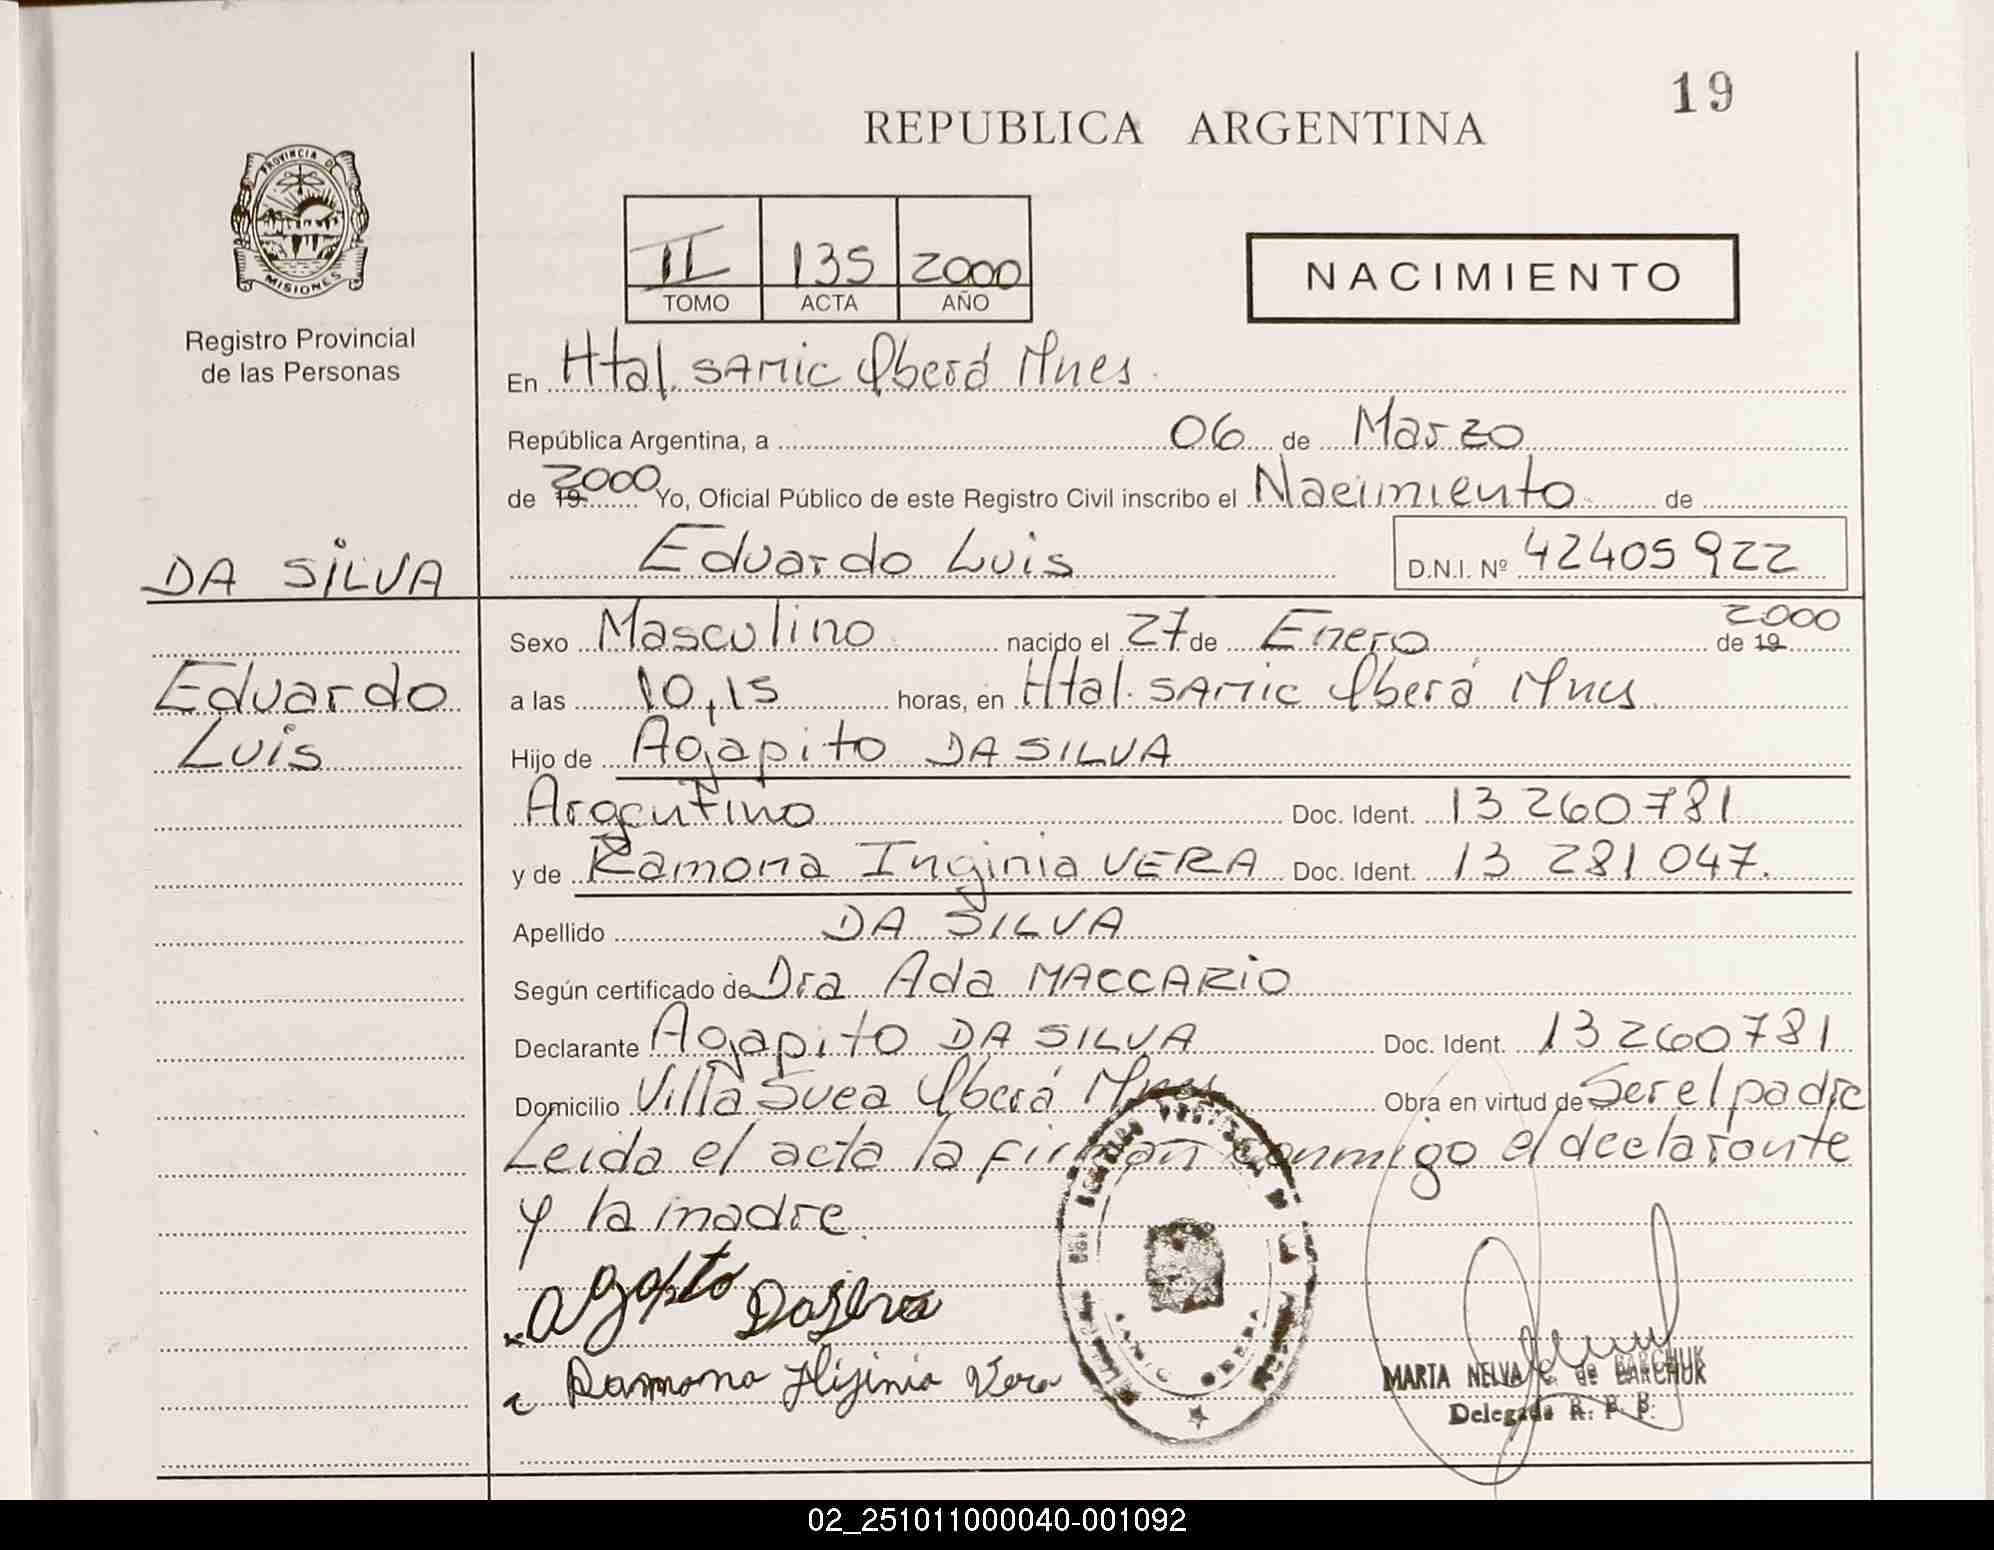 19
REPUBLICA ARGENTINA
PROVINCIA DE
MISIONES
Registro Provincial
de las Personas
II 135 2000
TOMO ACTA AÑO
NACIMIENTO
En Htal. SAMIC Oberá Mnes.
República Argentina, a 06 de Marzo
de 19 2000 Yo, Oficial Público de este Registro Civil inscribo el Nacimiento de
DA SILVA
Eduardo Luis D.N.I. Nº 42405922
Eduardo
Luis
Sexo Masculino nacido el 27 de Enero de 19 2000
a las 10,15 horas, en Htal. SAMIC Oberá Mnes.
Hijo de Agapito DA SILVA
Argentino Doc. Ident. 13260781
y de Ramona Inginia VERA Doc. Ident. 13 281 047.
Apellido DA SILVA
Según certificado de Dra Ada MACCARIO
Declarante Agapito DA SILVA Doc. Ident. 13260781
Domicilio Villa Svea Oberá Mnes Obra en virtud de Ser el padre
Leida el acta la firman conmigo el declarante
y la madre.
Agapto Dasilva
Ramona Hijinia Vera
MARTA NELVA C. de BARCHUK
Delegada R. P. P.
02_251011000040-001092